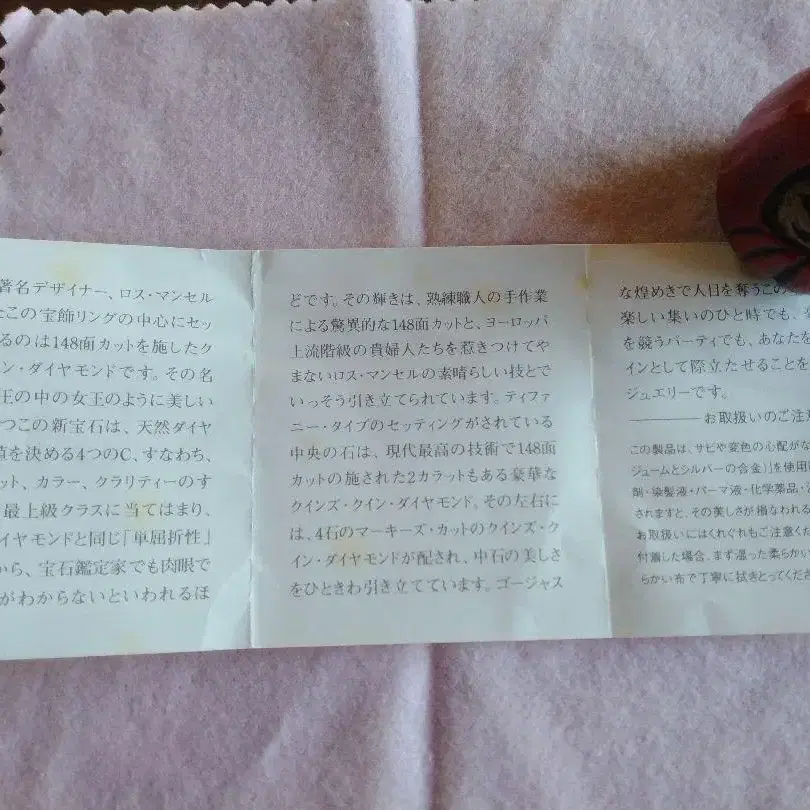 著名デザイナー、ロス・マンセル
この宝飾リングの中心にセッ
るのは148面カットを施したク
ン・ダイヤモンドです。その名
王の中の女王のように美しい
つこの新宝石は、天然ダイヤ
を決める4つのC、すなわち、
ット、カラー、クラリティーのす
最上級クラスに当てはまり、
イヤモンドと同じ「単屈折性」
から、宝石鑑定家でも肉眼で
がわからないといわれるほ
どです。その輝きは、熟練職人の手作業
による驚異的な148面カットと、ヨーロッパ
上流階級の貴婦人たちを惹きつけてや
まないロス・マンセルの素晴らしい技とで
いっそう引き立てられています。ティファ
ニー・タイプのセッティングがされている
中央の石は、現代最高の技術で148面
カットの施された2カラットもある豪華な
クインズ・クイン・ダイヤモンド。その左右に
は、4石のマーキーズ・カットのクインズ・ク
イン・ダイヤモンドが配され、中石の美しさ
をひときわ引き立てています。ゴージャス
な煌めきで人目を奪うこの
楽しい集いのひと時でも、
を競うパーティでも、あなた
インとして際立たせることを
ジュエリーです。
お取扱いのご注意
この製品は、サビや変色の心配がな
ジュームとシルバーの合金)」を使用
剤・染髪液・パーマ液・化学薬品・
されますと、その美しさが損なわれる
お取扱いにはくれぐれもご注意くだ
付着した場合、まず湿った柔らかい
らかい布で丁寧に拭きとってくださ